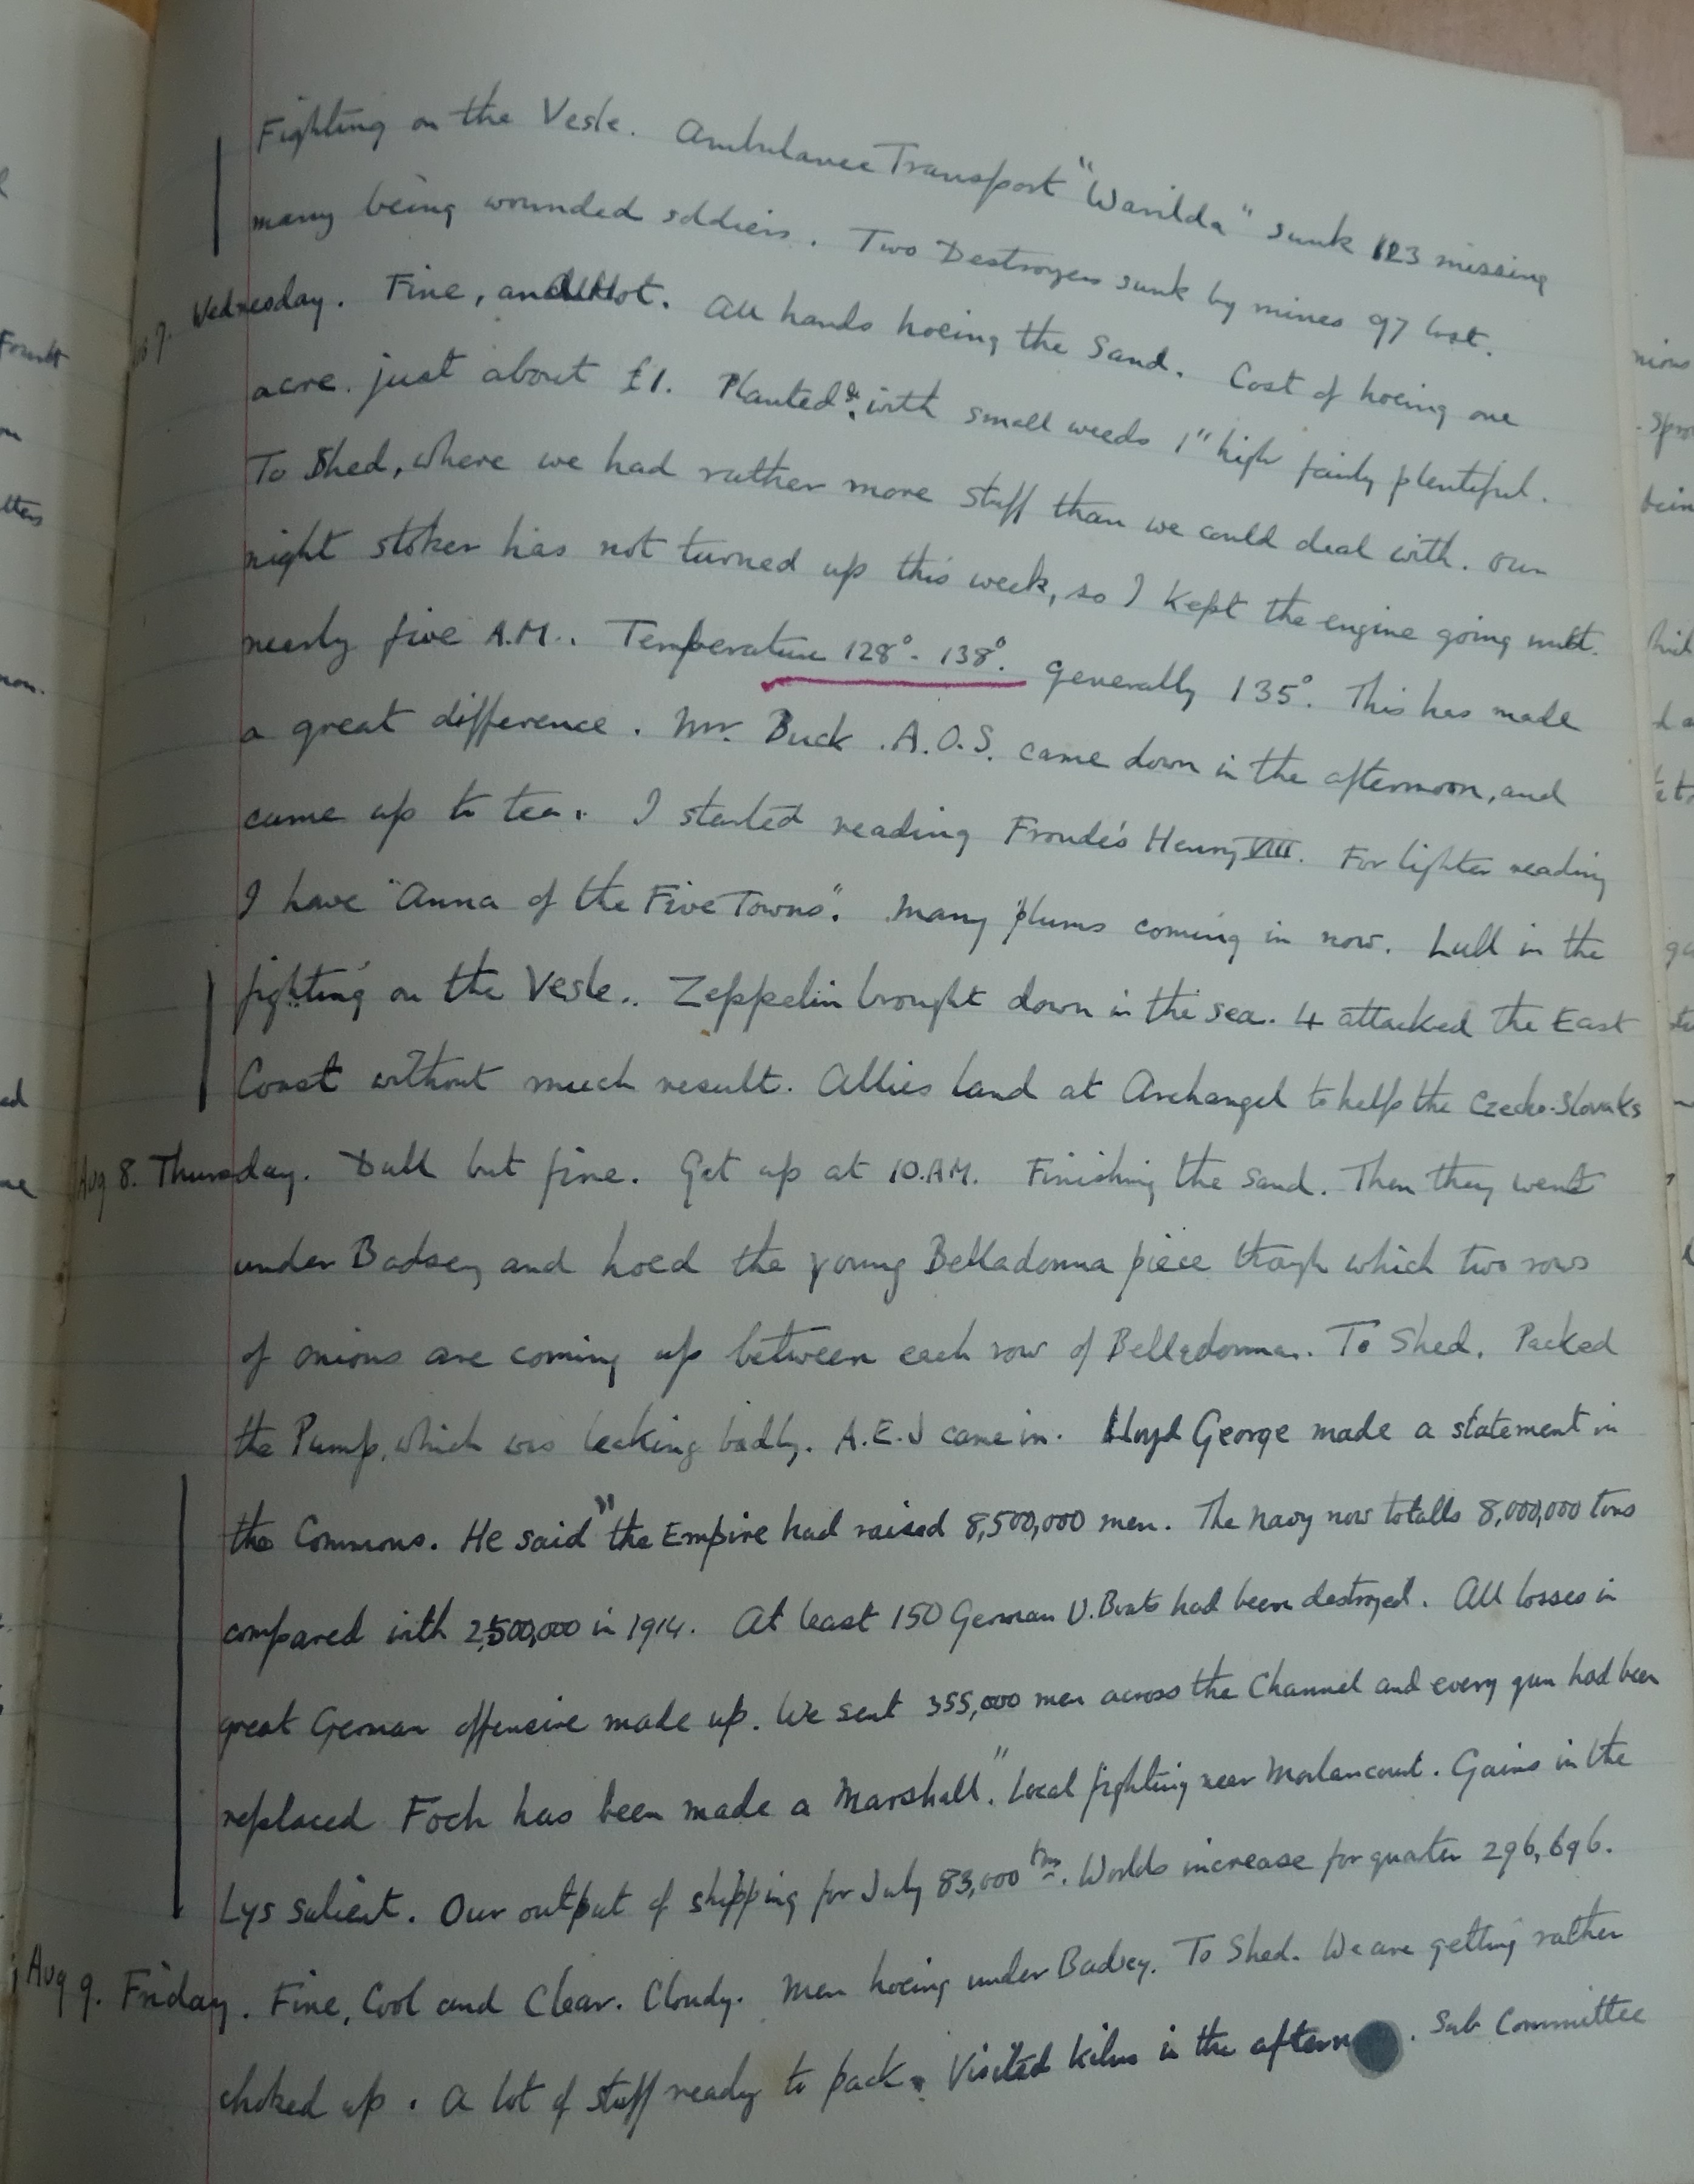 Fighting on the Vesle. Ambulance Transport "Warilda" sunk 123 missing
many being wounded soldiers. Two Destroyers sunk by mines 97 lost.
7. Wednesday. Fine, and Hot. All hands hoeing the Sand. Cost of hoeing one
acre. just about £1. Planted with small weeds 1" high fairly plentiful.
To Shed, where we had rather more stuff than we could deal with. Our
night stoker has not turned up this week, so I kept the engine going until
nearly five A.M.. Temperature 128° - 138°. generally 135°. This has made
a great difference. Mr. Buck. A.O.S. came down in the afternoon, and
came up to tea. I started reading Froude's Henry VIII. For lighter reading
I have "Anna of the Five Towns". Many plums coming in now. Lull in the
fighting on the Vesle.. Zeppelin brought down in the sea. 4 attacked the East
Coast without much result. Allies land at Archangel to help the Czecko-Slovaks
Aug 8. Thursday. Dull but fine. Get up at 10.A.M. Finishing the Sand. Then they went
under Badsey and hoed the young Belladonna piece though which two rows
of onions are coming up between each row of Belladonna. To Shed. Packed
the Pump, which was leaking badly. A.E.J came in. Lloyd George made a statement in
the Commons. He said "the Empire had raised 8,500,000 men. The Navy now totalls 8,000,000 tons
compared with 2,500,000 in 1914. At least 150 German U.Boats had been destroyed. All losses in
great German offensive made up. We sent 355,000 men across the Channel and every gun had been
replaced Foch has been made a Marshall". Local fighting near Morlancourt. Gains in the
Lys salient. Our output of shipping for July 83,000 tns. Worlds increase for quarter 296,696.
Aug 9. Friday. Fine, Cool and Clear. Cloudy. Men hoeing under Badsey. To Shed. We are getting rather
choked up. A lot of stuff ready to pack. Visited kilns in the aftern. Sub Committee